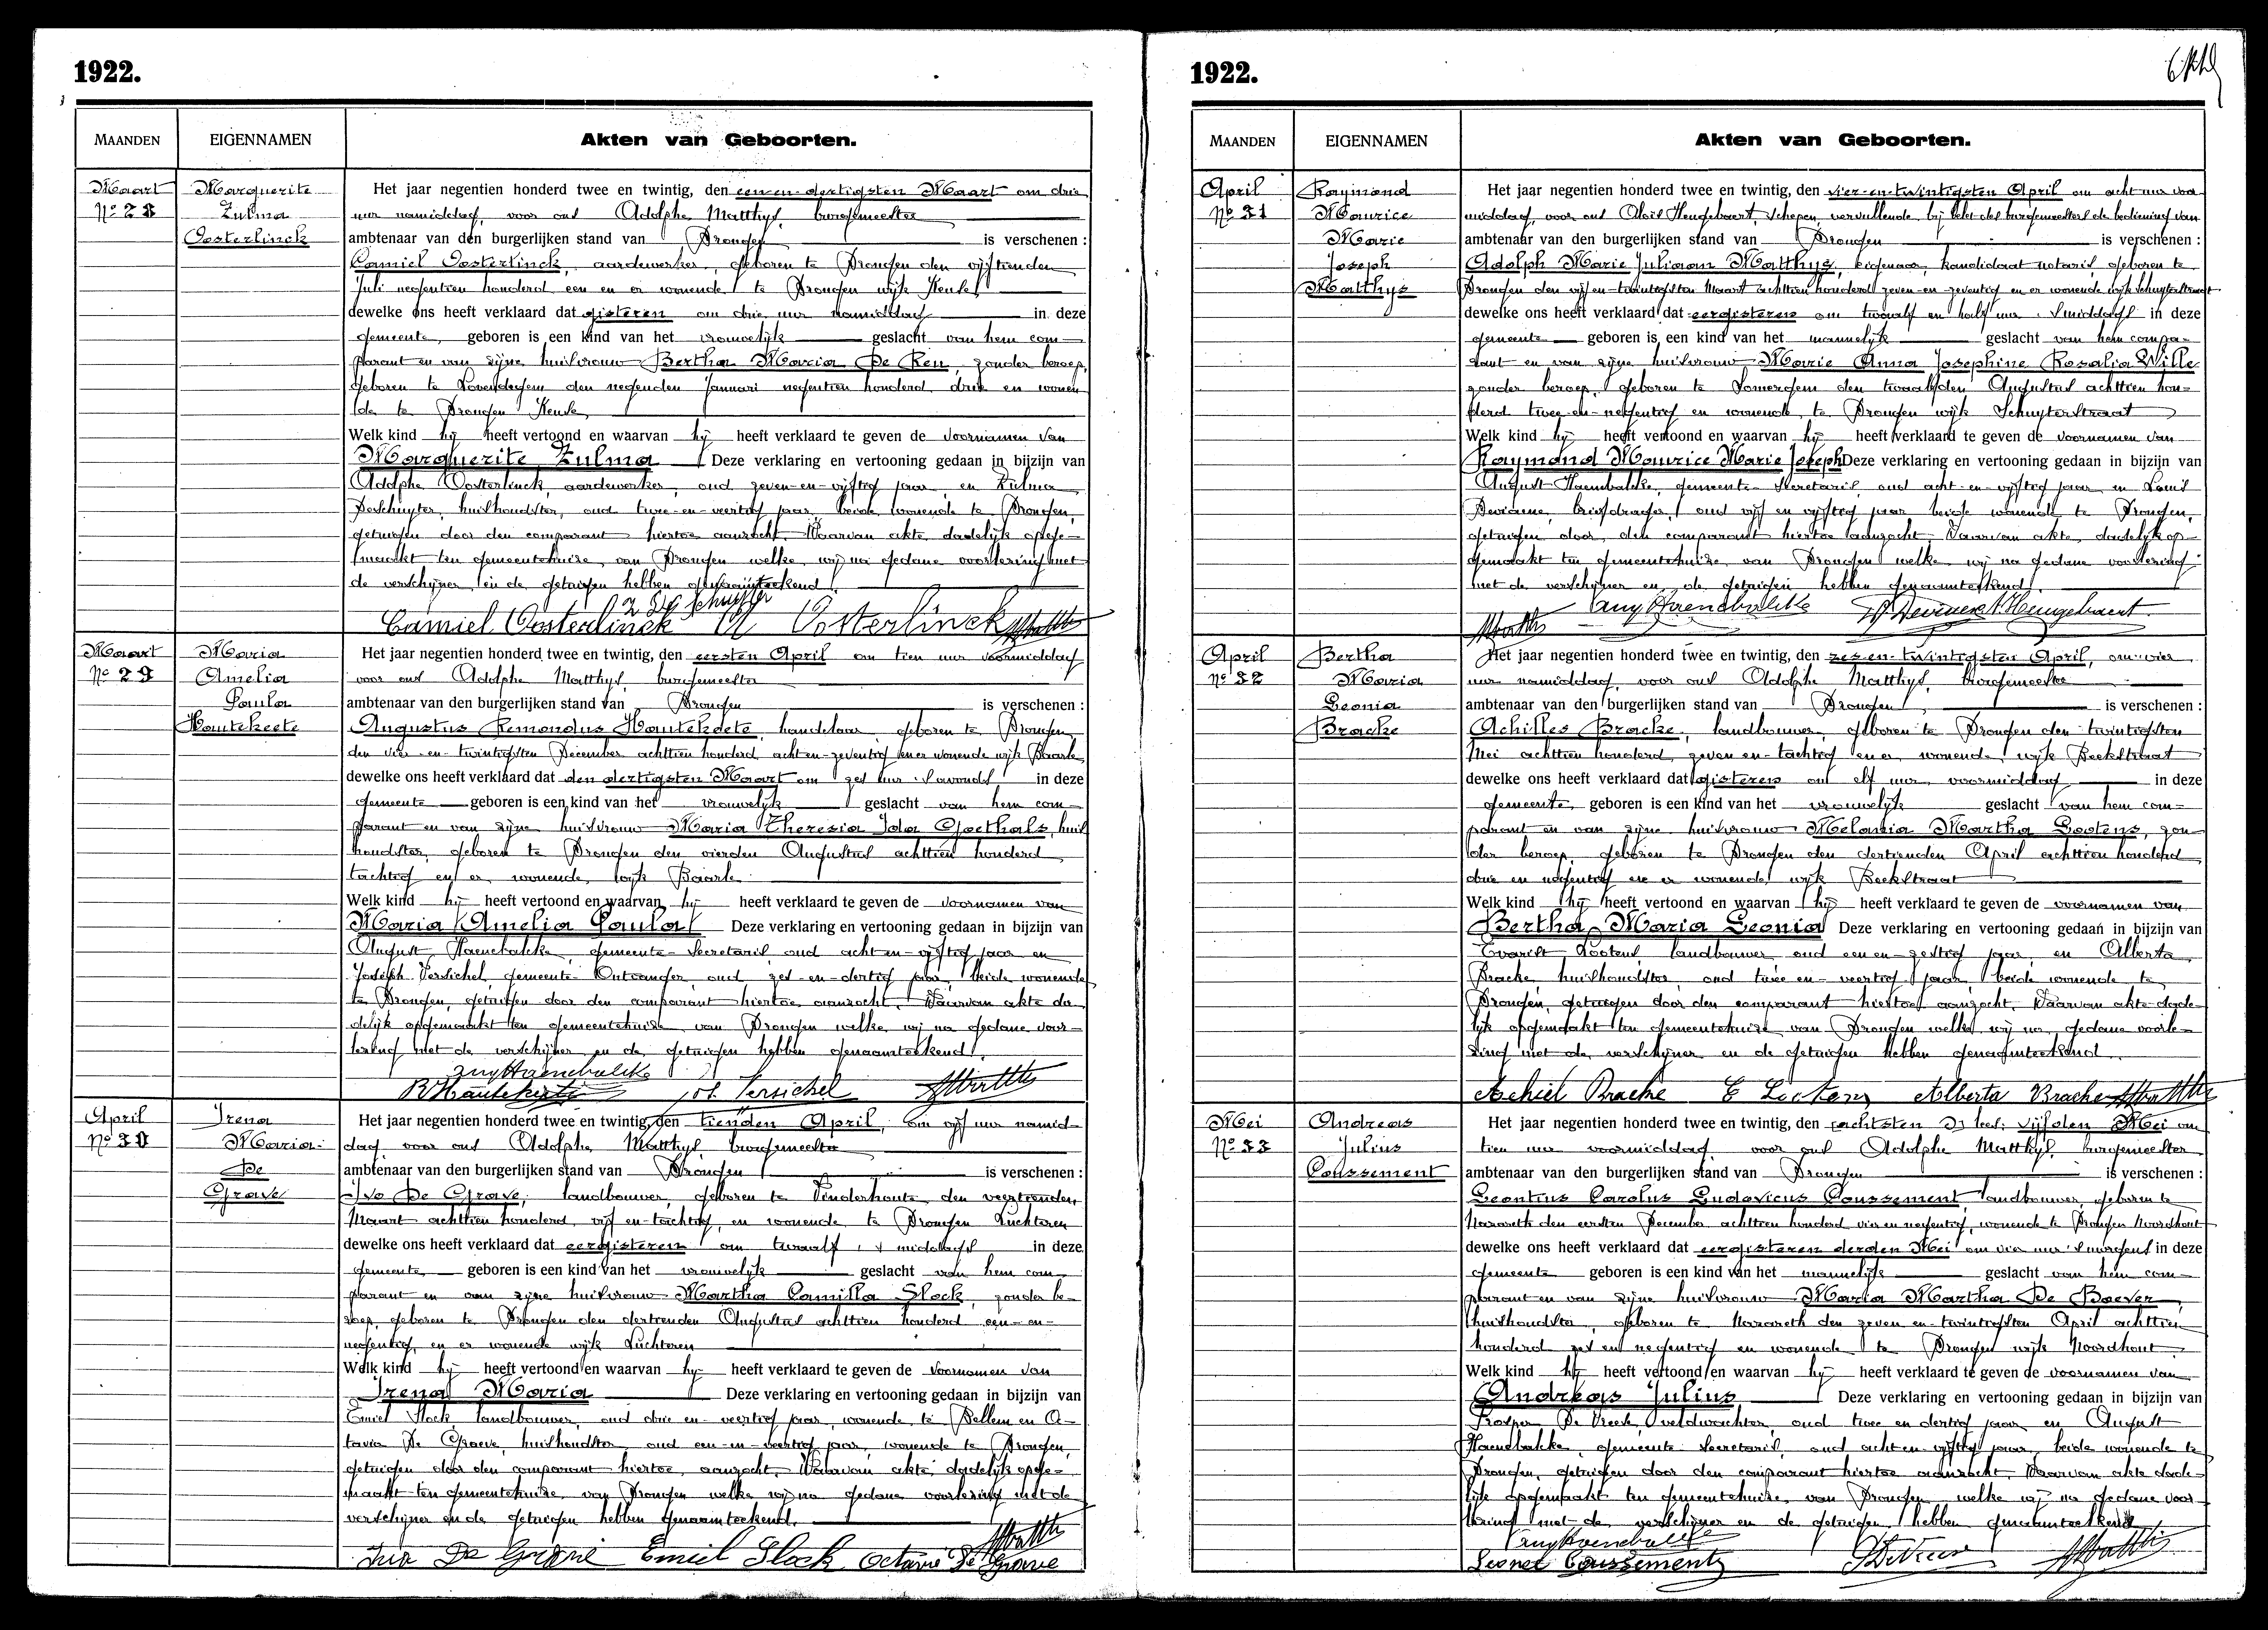 1922.
MAANDEN
EIGENNAMEN
Akten van Geboorten.
Maart
No 28
Marguerite
Zulma
Oosterlinck
Het jaar negentien honderd twee en twintig, den een en dertigsten Maart om drie
uur namiddag, voor ons Adolphe Matthys, burgemeester
ambtenaar van den burgerlijken stand van Drongen is verschenen :
Camiel Oosterlinck, aardewerker, geboren te Drongen den vijftienden
Juli negentien honderd een en er wonende te Drongen wijk Keuze
dewelke ons heeft verklaard dat gisteren om drie uur namiddag in deze
gemeente geboren is een kind van het vrouwelijk geslacht van hem com-
parant en van zijne huisvrouw Bertha Maria De Reu, zonder beroep,
geboren te Lovendegem den negenden Januari negentien honderd drie en wonen
de te Drongen Keuze
Welk kind hij heeft vertoond en waarvan hij heeft verklaard te geven de voornamen van
Marguerite Zulma Deze verklaring en vertooning gedaan in bijzijn van
Adolphe Oosterlinck, aardewerker, oud zeven-en-vijftig jaar en Zulma
Deschuyter, huishoudster, oud twee-en-veertig jaar, beide wonende te Drongen,
getuigen door den comparant hiertoe aanzocht. Waarvan akte dadelijk opge-
maakt ten gemeentehuize van Drongen welke wij na gedane voorlezing met
de verschijner en de getuigen hebben genaamteekend.
Z De Schuyter
Camiel Oosterlinck A Oosterlinck
Maart
No 29
Maria
Amelia
Paula
Hautekeete
Het jaar negentien honderd twee en twintig, den eersten April om tien uur voormiddag
voor ons Adolphe Matthys, burgemeester
ambtenaar van den burgerlijken stand van Drongen is verschenen :
Augustus Remondus Hautekeete, handelaar, geboren te Drongen
den vier-en-twintigsten December achttien honderd acht en-zeventig en er wonende wijk Baarle
dewelke ons heeft verklaard dat den dertigsten Maart om zes uur 's avonds in deze
gemeente geboren is een kind van het vrouwelijk geslacht van hem com-
parant en van zijne huisvrouw Maria Theresia Ida Goethals, huis
houdster, geboren te Drongen den vierden Augustus achttien honderd
tachtig en er wonende wijk Baarle
Welk kind hij heeft vertoond en waarvan hij heeft verklaard te geven de voornamen van
Maria Amelia Paula Deze verklaring en vertooning gedaan in bijzijn van
August Haenebalcke, gemeente-Secretaris, oud acht en-vijftig jaar en
Joseph Versichel, gemeente-Ontvanger, oud zes-en-dertig jaar, beide wonende
te Drongen, getuigen door den comparant hiertoe aanzocht. Waarvan akte da
delijk opgemaakt ten gemeentehuize van Drongen welke wij na gedane voor-
lezing met de verschijner en de getuigen hebben genaamteekend.
Aug Haenebalcke
R Hautekeete Jos. Versichel
April
No 30
Irena
Maria
De
Grave
Het jaar negentien honderd twee en twintig, den tienden April, om vijf uur namid-
dag voor ons Adolphe Matthys burgemeester
ambtenaar van den burgerlijken stand van Drongen is verschenen :
Ivo De Grave, landbouwer, geboren te Vinderhoute den veertienden
Maart achttien honderd vijf en-tachtig, en wonende te Drongen Luchteren
dewelke ons heeft verklaard dat eergisteren om twaalf 's middags in deze
gemeente geboren is een kind van het vrouwelijk geslacht van hem com
parant en van zijne huisvrouw Martha Camilla Slock, zonder be-
roep, geboren te Drongen den dertienden Augustus achttien honderd een-en-
negentig, en er wonende wijk Luchteren
Welk kind hij heeft vertoond en waarvan hij heeft verklaard te geven de voornamen van
Irena Maria Deze verklaring en vertooning gedaan in bijzijn van
Emiel Slock, landbouwer, oud drie en-veertig jaar, wonende te Bellem en O-
tavia De Graeve, huishoudster, oud een-en-veertig jaar, wonende te Drongen,
getuigen door den comparant hiertoe aanzocht. Waarvan akte dadelijk opge-
maakt ten gemeentehuize van Drongen welke wij na gedane voorlezing met de
verschijner en de getuigen hebben genaamteekend.
Ivo De Grave Emiel Slock Octavie De Grave
1922.
MAANDEN
EIGENNAMEN
Akten van Geboorten.
April
No 31
Raymond
Maurice
Marie
Joseph
Matthys
Het jaar negentien honderd twee en twintig, den vier-en-twintigsten April om acht uur voor
middag, voor ons Aloïs Heugebaert, Schepen, vervullende bij belet des burgemeesters de bediening van
ambtenaar van den burgerlijken stand van Drongen is verschenen :
Adolph Marie Juliaan Matthys, eigenaar, kandidaat notaris, geboren te
Drongen den vijf en-twintigsten Maart achttien honderd zeven-en zeventig en er wonende wijk Schuyterstraat
dewelke ons heeft verklaard dat eergisteren om twaalf en half uur 's middags in deze
gemeente geboren is een kind van het mannelijk geslacht van hem compa-
rant en van zijne huisvrouw Marie Anna Josephine Rosalia Wille
zonder beroep, geboren te Somergem den twaalfden Augustus achttien hon-
derd twee-en-negentig en wonende te Drongen wijk Schuyterstraat
Welk kind hij heeft vertoond en waarvan hij heeft verklaard te geven de voornamen van
Raymond Maurice Marie Joseph Deze verklaring en vertooning gedaan in bijzijn van
August Haenebalcke, gemeente-Secretaris, oud acht-en-vijftig jaar en Louis
Deviaene, briefdrager, oud vijf en vijftig jaar beide wonende te Drongen,
getuigen door den comparant hiertoe aanzocht. Waarvan akte, dadelijk op-
gemaakt ten gemeentehuize van Drongen welke wij na gedane voorlezing
met de verschijner en de getuigen hebben genaamteekend.
Aug Haenebalcke A. Heugebaert
April
No 32
Bertha
Maria
Leonia
Bracke
Het jaar negentien honderd twee en twintig, den zes en-twintigsten April, om vier
uur namiddag, voor ons Adolphe Matthys, burgemeester
ambtenaar van den burgerlijken stand van Drongen is verschenen :
Achilles Bracke, landbouwer, geboren te Drongen den twintigsten
Mei achttien honderd zeven en-tachtig en er wonende wijk Beekstraat
dewelke ons heeft verklaard dat gisteren om elf uur voormiddag in deze
gemeente geboren is een kind van het vrouwelijk geslacht van hem com-
parant en van zijne huisvrouw Melania Martha Lootens, zon
der beroep, geboren te Drongen den dertienden April achttien honderd
drie en negentig en er wonende wijk Beekstraat
Welk kind hij heeft vertoond en waarvan hij heeft verklaard te geven de voornamen van
Bertha Maria Leonia Deze verklaring en vertooning gedaan in bijzijn van
Evarist Lootens, landbouwer oud een en-zestig jaar, en Alberta
Bracke, huishoudster, oud twee en-veertig jaar, beide wonende te
Drongen, getuigen door den comparant hiertoe aanzocht. Waarvan akte dade-
lijk opgemaakt ten gemeentehuize van Drongen welke wij na gedane voorle-
zing met de verschijner en de getuigen hebben genaamteekend.
Achiel Bracke E Lootens Alberta Bracke
Mei
No 33
Andreas
Julius
Coussement
Het jaar negentien honderd twee en twintig, den vijfden Mei om
tien uur voormiddag voor ons Adolphe Matthys, burgemeester
ambtenaar van den burgerlijken stand van Drongen is verschenen :
Leontius Carolus Ludovicus Coussement, landbouwer, geboren te
Nazareth den eersten December achttien honderd vier en negentig, wonende te Drongen Noordhout
dewelke ons heeft verklaard dat eergisteren derden Mei om vier uur 's morgens in deze
gemeente geboren is een kind van het mannelijk geslacht van hem com-
parant en van zijne huisvrouw Maria Martha De Baever,
huishoudster, geboren te Nazareth den zeven en-twintigsten April achttien
honderd zes en negentig en wonende te Drongen wijk Noordhout.
Welk kind hij heeft vertoond en waarvan hij heeft verklaard te geven de voornamen van
Andreas Julius Deze verklaring en vertooning gedaan in bijzijn van
Prosper De Vreese, veldwachter, oud twee en dertig jaar en August
Haenebalcke, gemeente-Secretaris, oud acht en-vijftig jaar, beide wonende te
Drongen, getuigen door den comparant hiertoe aanzocht. Waarvan akte dade-
lijk opgemaakt ten gemeentehuize van Drongen welke wij na gedane voor
lezing met de verschijner en de getuigen hebben genaamteekend
Aug Haenebalcke
Leonel Coussement